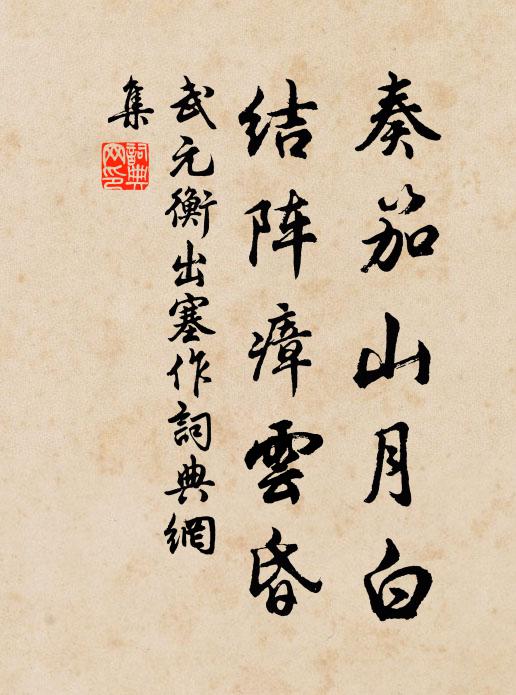 奏笳山月白
结阵瘴雲昏
武元衡出塞作詞典網
集
詞典
网印